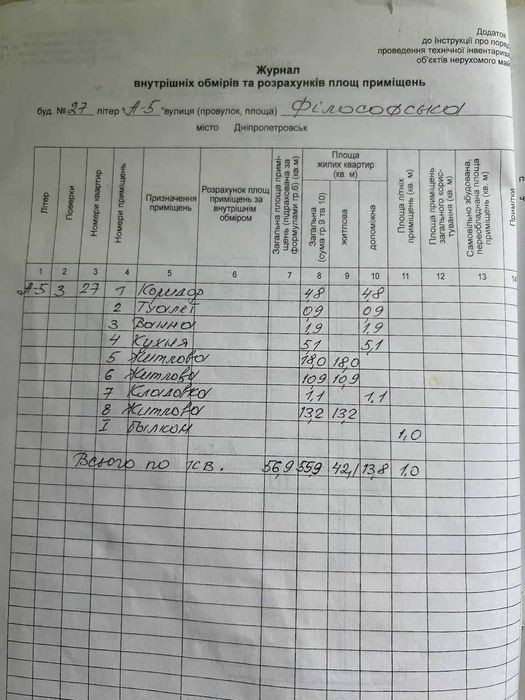 Додаток
до Інструкції про поря
проведення технічної інвентариза
об'єктів нерухомого май
Журнал
внутрішніх обмірів та розрахунків площ приміщень
буд. № 27 літер "А-5" вулиця (провулок, площа) Філософська
місто Дніпропетровськ
Літер
Поверхи
Номери квартир
Номери приміщень
Призначення приміщень
Розрахунок площ приміщень за внутрішнім обміром
Загальна площа приміщень (підрахована за формулами гр.6) (кв. м)
Площа жилих квартир (кв. м)
Загальна (сума гр. 9 та 10)
житлова
допоміжна
Площа літніх приміщень (кв. м)
Площа приміщень загального користування (кв. м)
Самовільно збудована, переобладнана площа приміщень (кв. м)
Примітки
1 2 3 4 5 6 7 8 9 10 11 12 13 14
А-5 3 27 1 Коридор 4,8 4,8
2 Туалет 0,9 0,9
3 Ванна 1,9 1,9
4 Кухня 5,1 5,1
5 Житлова 18,0 18,0
6 Житлова 10,9 10,9
7 Кладовка 1,1 1,1
8 Житлова 13,2 13,2
I Былкон 1,0
Всього по кв. 56,9 55,9 42,1 13,8 1,0